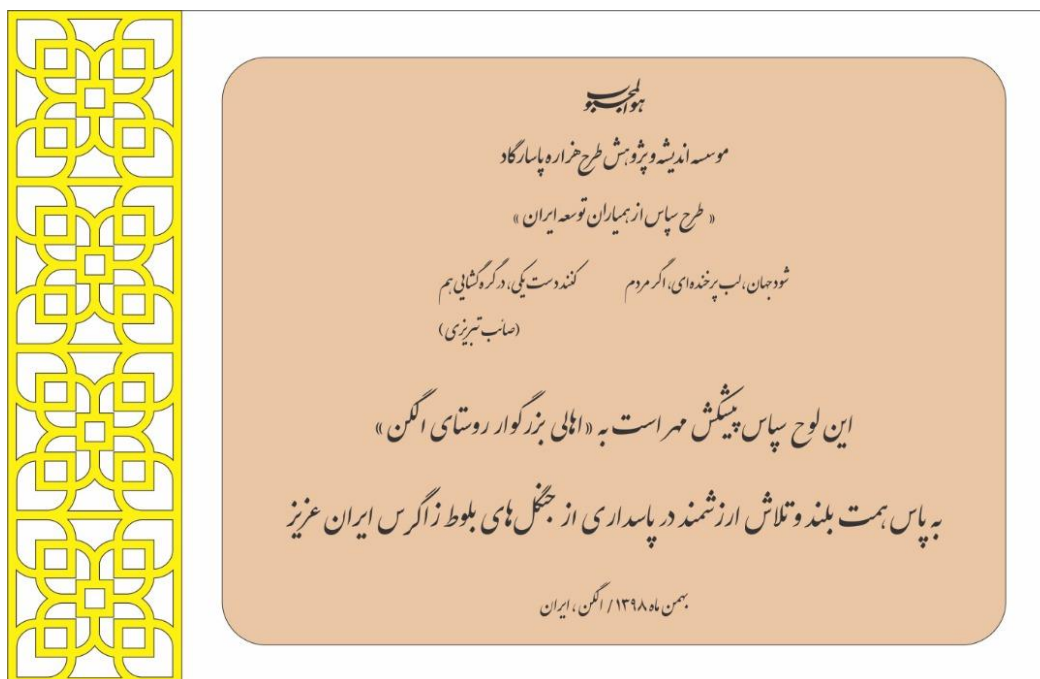 هوالمحبوب
موسسه اندیشه و پژوهش طرح هزاره پاسارگاد
« طرح سپاس از همیاران توسعه ایران »
شود جهان، لب پرخنده‌ای، اگر مردم کنند دست یکی، در گره گشایی هم
(صائب تبریزی)
این لوح سپاس پیشکش مهر است به «اهالی بزرگوار روستای الگن»
به پاس همت بلند و تلاش ارزشمند در پاسداری از جنگل‌های بلوط زاگرس ایران عزیز
بهمن ماه ۱۳۹۸ / الگن ، ایران